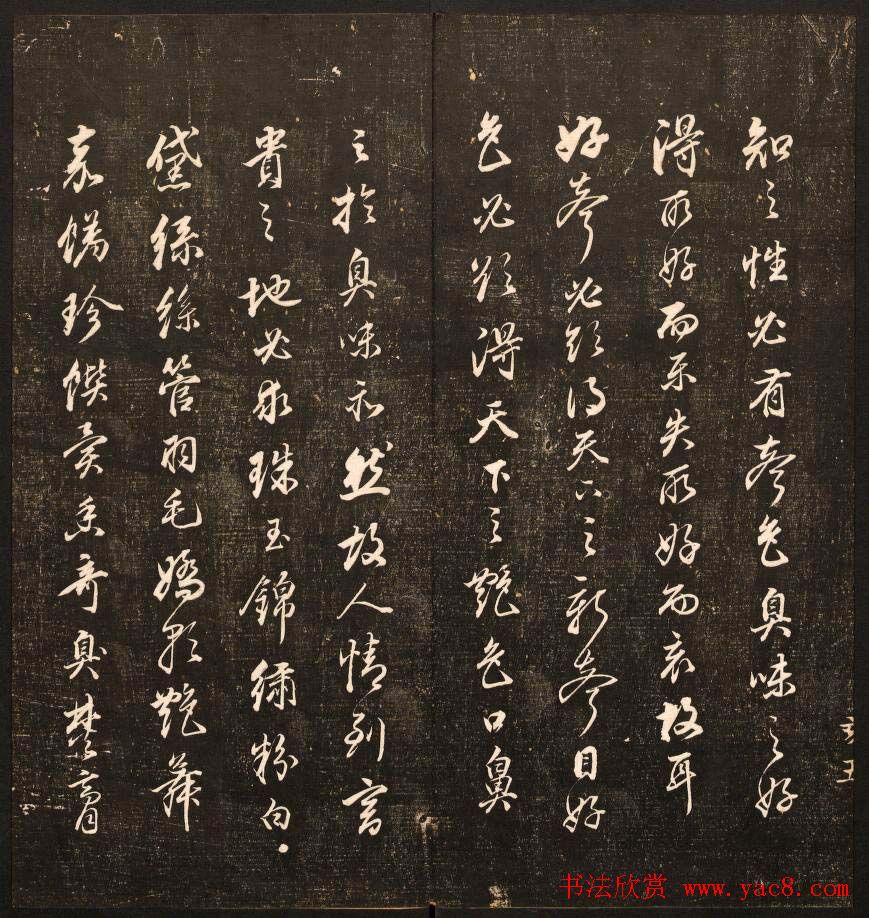 知之性必有聲色臭味之好
得所好而樂失所好而哀故耳
好聲必須得天下之新聲目好
色必須得天下之艷色口鼻
之於臭味亦然故人情到富
貴之地必求珠玉錦繡粉白
黛綠絲管羽毛嬌歌艷舞
嘉餚珍饌異香奇臭焚膏
书法欣赏 www.yac8.com